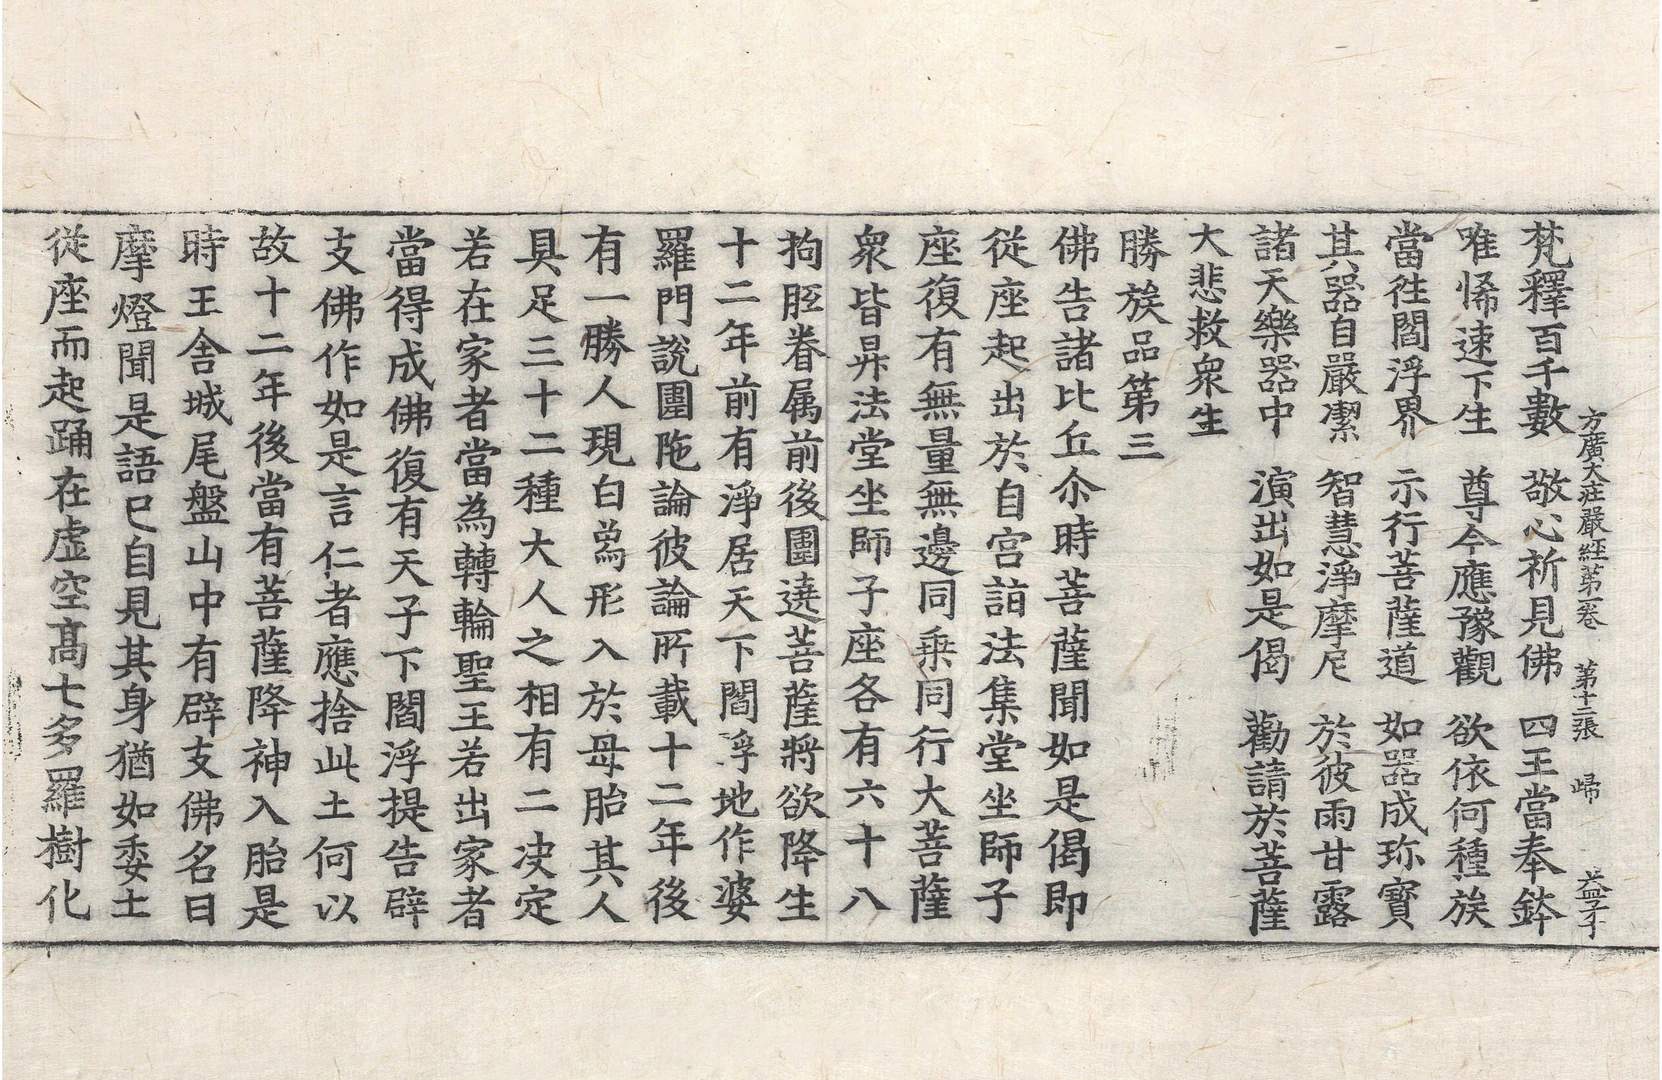 方廣大莊嚴經第一卷 第十二張 歸 益孑
梵釋百千數 敬心祈見佛 四王當奉鉢
唯悕速下生 尊今應豫觀 欲依何種族
當徃閻浮界 示行菩薩道 如器成珎寶
其器自嚴潔 智慧淨摩尼 於彼雨甘露
諸天樂器中 演出如是偈 勸請於菩薩
大悲救衆生
勝族品第三
佛告諸比丘尒時菩薩聞如是偈即
從座起出於自宮詣法集堂坐師子
座復有無量無邊同乗同行大菩薩
衆皆昇法堂坐師子座各有六十八
拘胝眷属前後圍遶菩薩將欲降生
十二年前有淨居天下閻浮地作婆
羅門說圍陁論彼論所載十二年後
有一勝人現白為形入於母胎其人
具足三十二種大人之相有二决定
若在家者當為轉輪聖王若出家者
當得成佛復有天子下閻浮提告辟
支佛作如是言仁者應捨此土何以
故十二年後當有菩薩降神入胎是
時王舍城尾盤山中有辟支佛名曰
摩燈聞是語已自見其身猶如委土
從座而起踊在虛空髙七多羅樹化